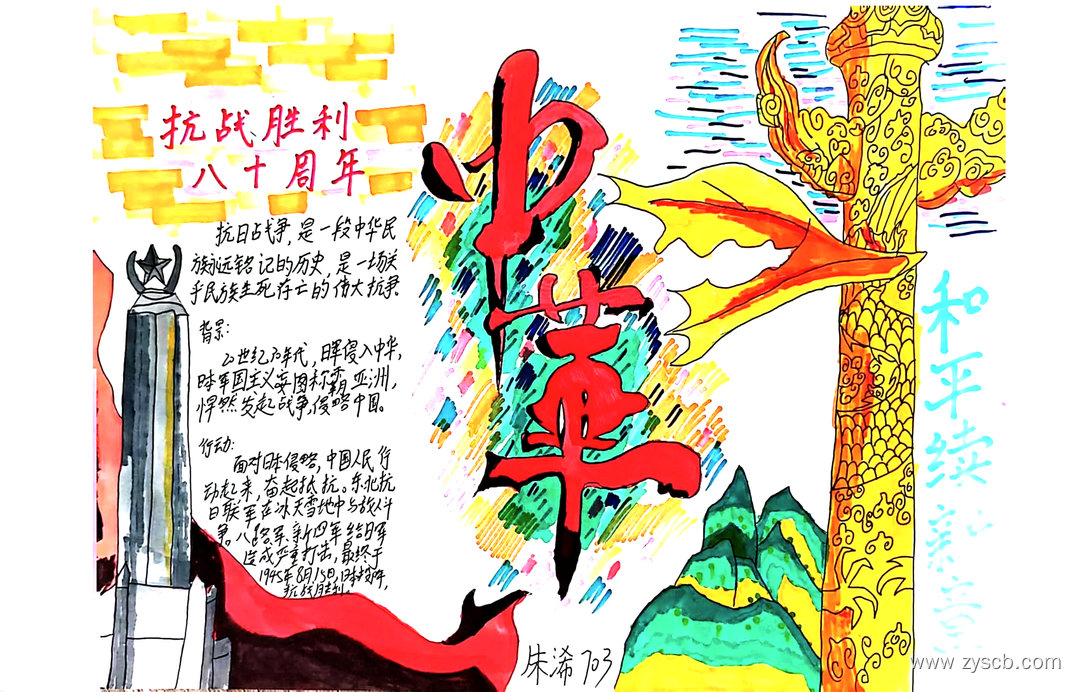 抗战胜利
八十周年
抗日战争,是一段中华民
族永远铭记的历史,是一场关
乎民族生死存亡的伟大抗争
背景:
20世纪30年代,日军侵入中华,
日本军国主义妄图称霸亚洲,
悍然发起战争,侵略中国。
行动:
面对日本侵略,中国人民行
动起来,奋起抵抗。东北抗
日联军在冰天雪地中与敌人斗
争。八路军、新四军给日军
造成严重打击,最终于
1945年8月15日,日本投降,
抗战胜利。
中
華
和平续新章
朱浠 703
www.zyscb.com